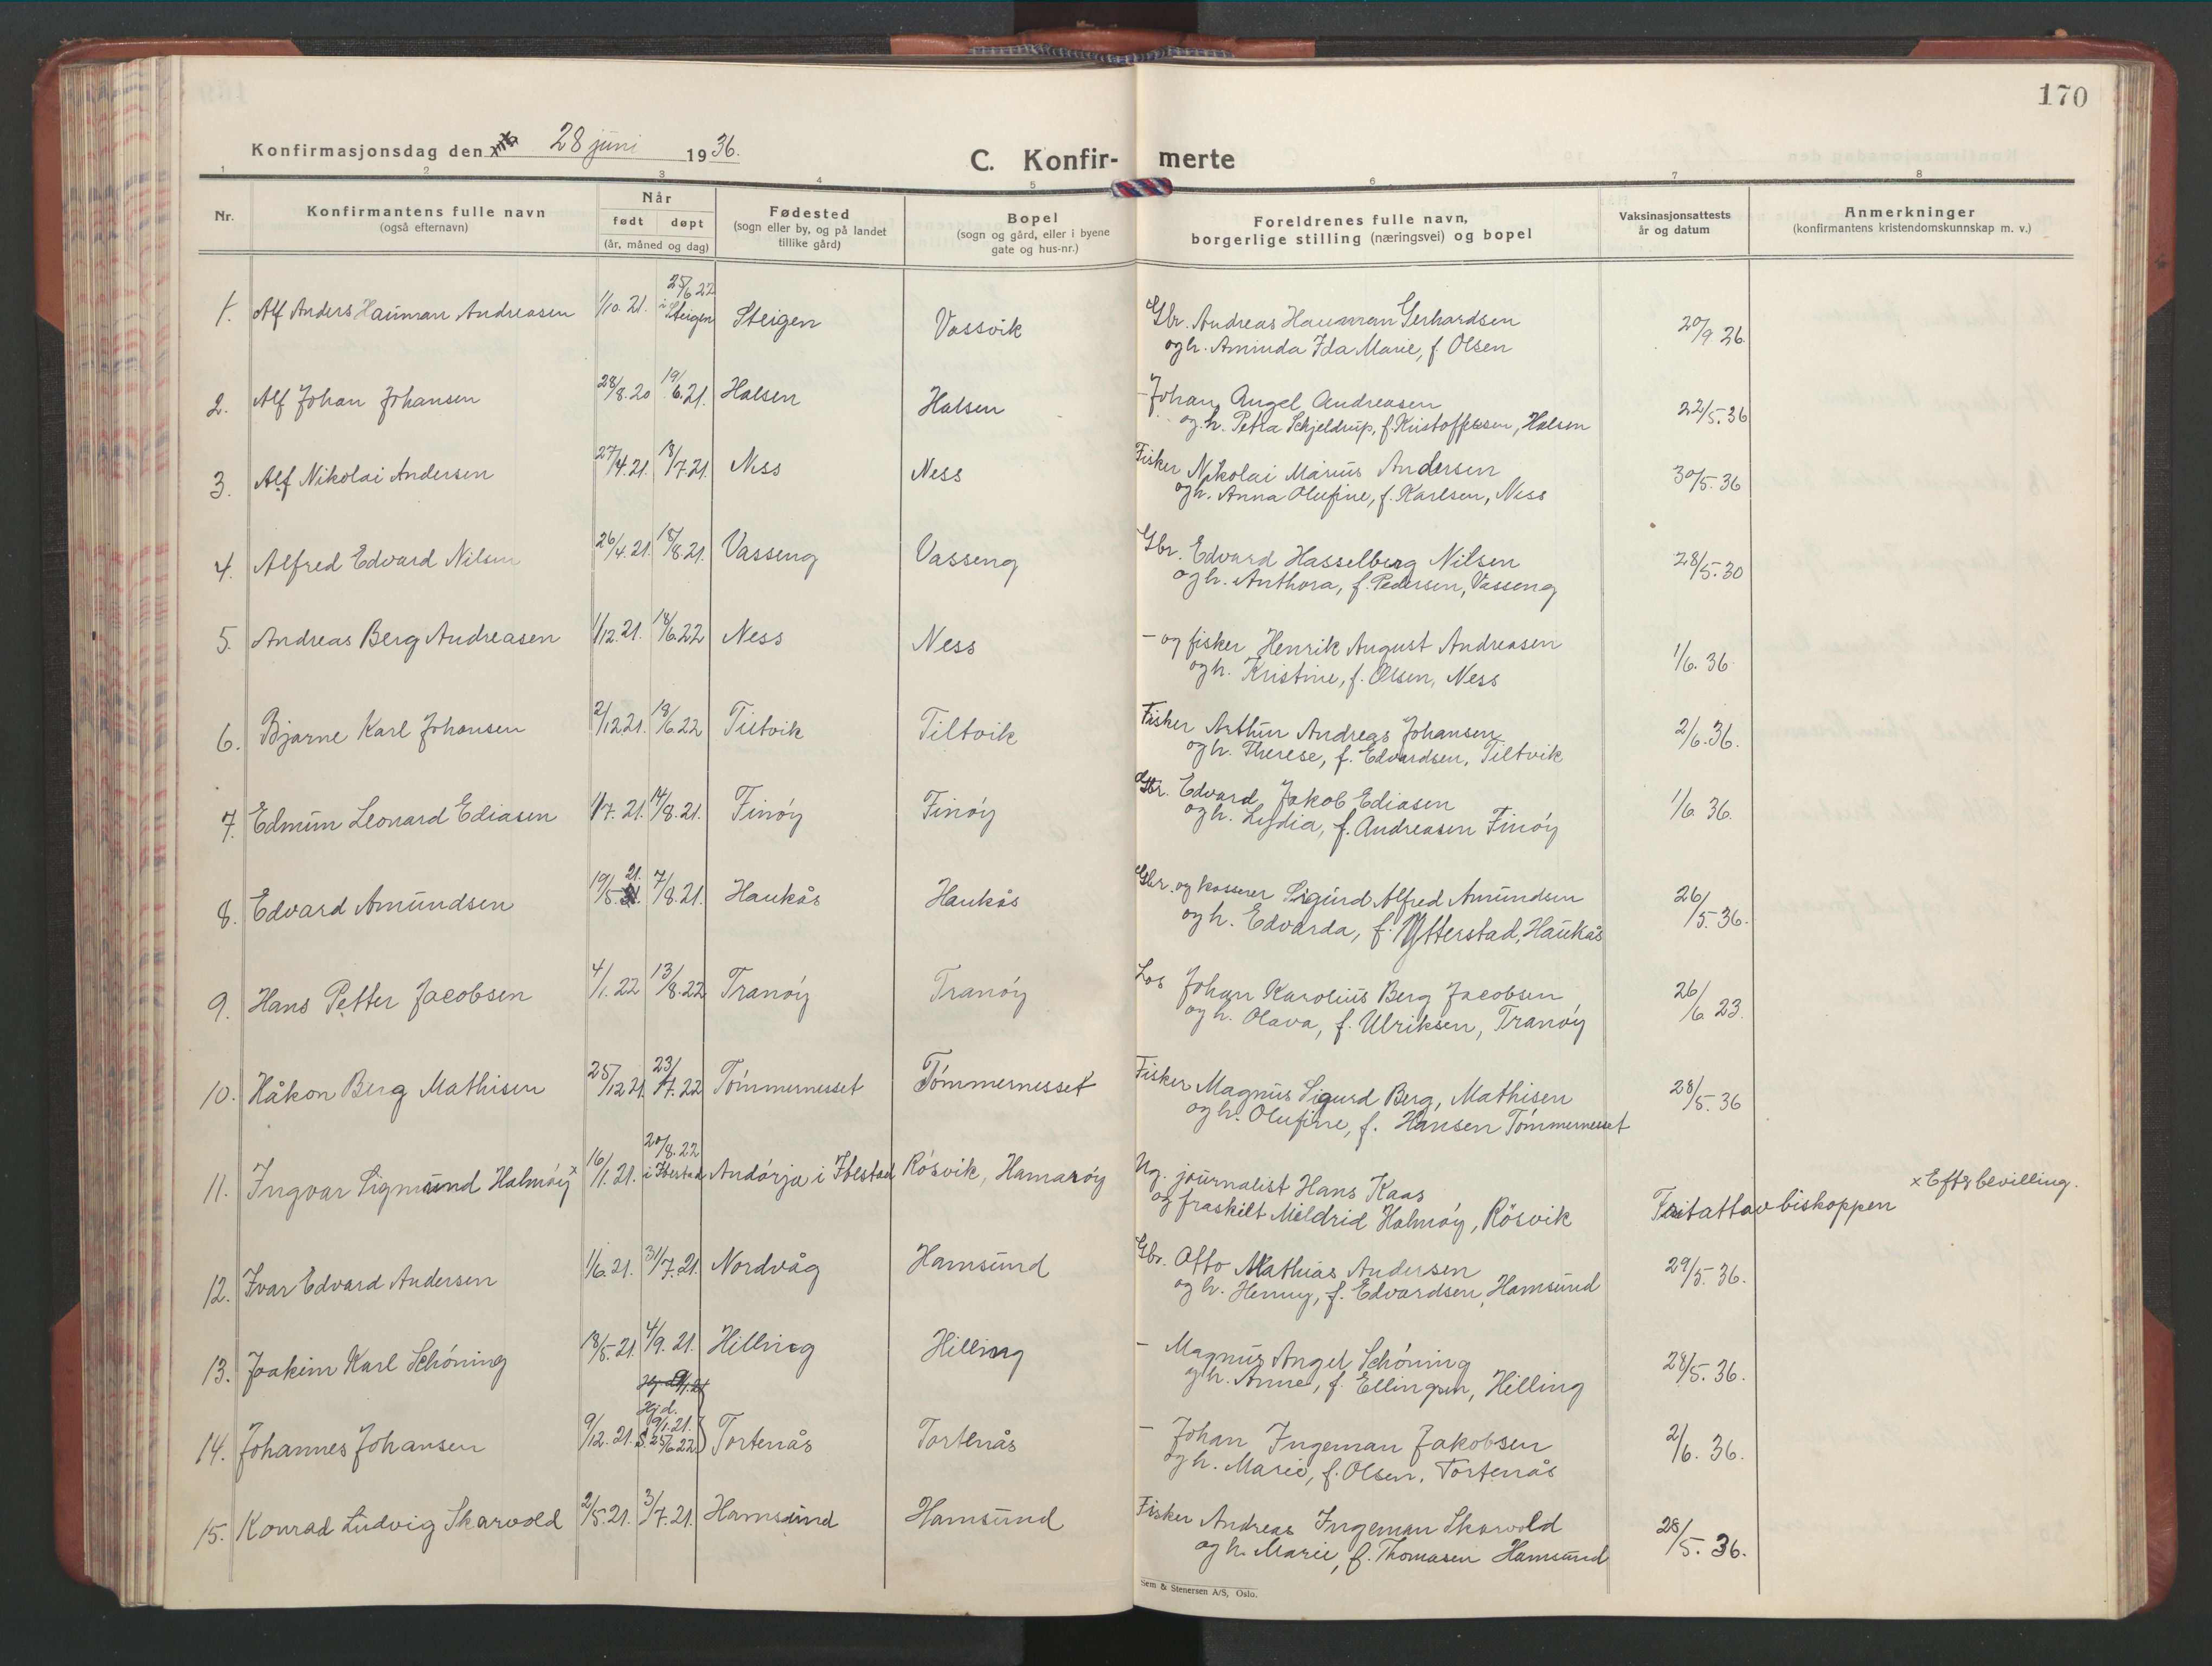 170
Konfirmasjonsdag den 28 juni 1936.
C. Konfir- merte
1 2 3 4 5 6 7 8
Nr.
Konfirmantens fulle navn
(også efternavn)
Når
født døpt
(år, måned og dag)
Fødested
(sogn eller by, og på landet
tillike gård)
Bopel
(sogn og gård, eller i byene
gate og hus-nr.)
Foreldrenes fulle navn,
borgerlige stilling (næringsvei) og bopel
Vaksinasjonsattests
år og datum
Anmerkninger
(konfirmantens kristendomskunnskap m. v.)
1. Alf Anders Hauman Andreasen 1/10.21. 25/6 22 i Steigen Steigen Vassvik Gbr. Andreas Hauman Gerhardsen 20/9 26
og h. Aminda Ida Marie, f. Olsen
2. Alf Johan Johansen 28/8.20 19/6.21. Halsen Halsen – Johan Angel Andreasen 22/5.36
og h. Petra Schjeldrup, f. Kristoffersen, Halsen
3. Alf Nikolai Andersen 27/4.21. 18/7.21. Ness Ness Fisker Nikolai Marius Andersen 30/5.36
og h. Anna Olufine, f. Karlsen, Ness
4. Alfred Edvard Nilsen 26/4.21. 18/8.21. Vasseng Vasseng Gbr. Edvard Hasselberg Nilsen 28/5.30
og h. Anthora, f. Pedersen, Vasseng
5. Andreas Berg Andreasen 1/12.21. 18/6.22 Ness Ness – og fisker Henrik August Andreasen 1/6.36
og h. Kristine, f. Olsen, Ness
6. Bjarne Karl Johansen 2/12.21. 18/6.22 Tiltvik Tiltvik Fisker Arthur Andreas Johansen 2/6.36.
og h. Therese, f. Edvardsen, Tiltvik
7. Edmun Leonard Ediasen 1/7.21. 14/8.21. Finøy Finøy Gbr. Edvard Jakob Ediasen 1/6 36.
og h. Lydia, f. Andreasen Finøy
8. Edvard Amundsen 19/5.21. 7/8.21. Haukås Haukås Gbr. og kasserer Sigurd Alfred Amundsen 26/5.36.
og h. Edvarda, f. Ytterstad, Haukås
9. Hans Petter Jacobsen 4/1.22 13/8.22 Tranøy Tranøy Los Johan Karolius Berg Jacobsen 26/6 23.
og h. Olava, f. Ulriksen, Tranøy
10. Håkon Berg Mathisen 25/12 21. 23/7.22 Tømmernesset Tømmernesset Fisker Magnus Sigurd Berg, Mathisen 28/5.36
og h. Olufine, f. Hansen Tømmernesset
11. Ingvar Sigmund Halmøy x 16/1.21. 20/8.22 i Ibestad Andørja i Ibestad Røsvik, Hamarøy Ug. journalist Hans Kaas x Eft. bevilling.
og fraskilt Mildrid Halmøy, Røsvik Fritatt av biskoppen
12. Ivar Edvard Andersen 1/6.21. 31/7.21. Nordvåg Hamsund Gbr. Otto Mathias Andersen 29/5.36.
og h. Henny, f. Edvardsen, Hamsund
13. Joakim Karl Schøning 18/5.21. 4/9.21. Hilling Hilling – Magnus Angel Schøning 28/5.36.
og h. Anne, f. Ellingsen, Hilling
14. Johannes Johansen 9/12.21. Hjd. 9/1.21. S. 25/6.22 Tortenås Tortenås – Johan Ingeman Jakobsen 2/6.36.
og h. Marie, f. Olsen, Tortenås
15. Konrad Ludvig Skarvold 2/5.21. 3/7.21. Hamsund Hamsund Fisker Andreas Ingeman Skarvold 28/5.36.
og h. Marie, f. Thomasen Hamsund
Sem & Stenersen A/S, Oslo.